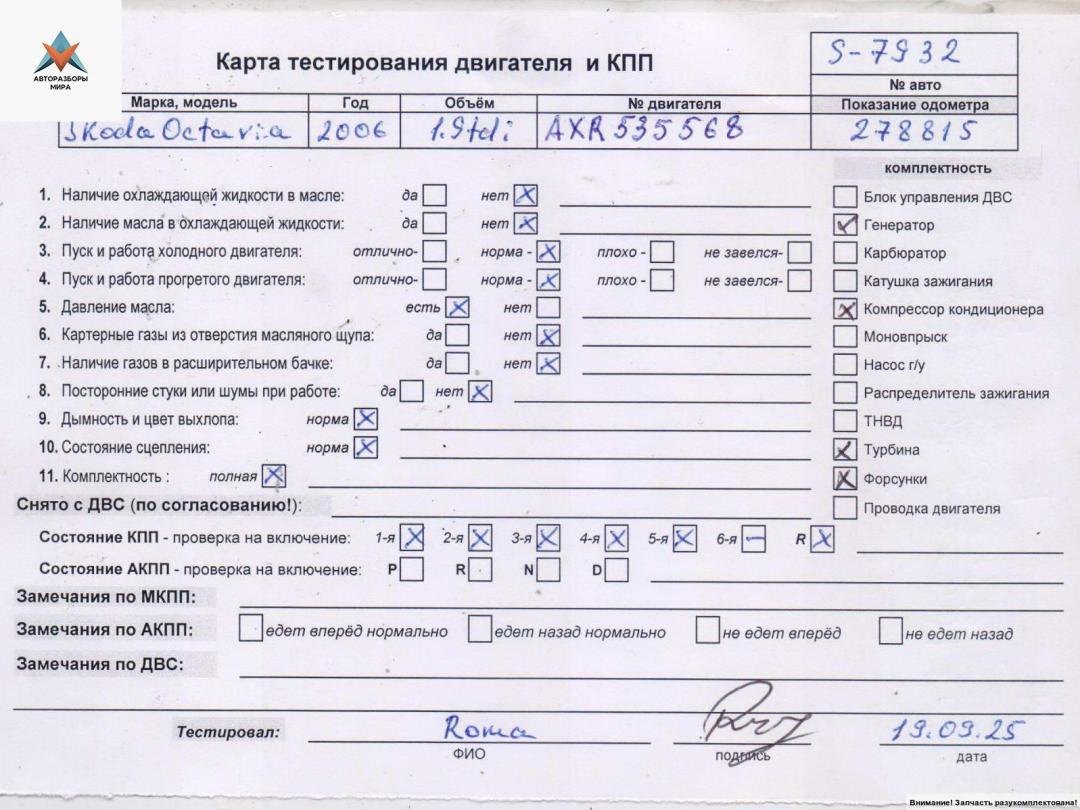 АВТОРАЗБОРЫ
МИРА
Карта тестирования двигателя и КПП
S-7932
№ авто
Марка, модель Год Объём № двигателя Показание одометра
Skoda Octavia 2006 1.9tdi AXR 535568 278815
комплектность
1. Наличие охлаждающей жидкости в масле: да нет X Блок управления ДВС
2. Наличие масла в охлаждающей жидкости: да нет X ✓ Генератор
3. Пуск и работа холодного двигателя: отлично- норма - X плохо - не завелся- Карбюратор
4. Пуск и работа прогретого двигателя: отлично- норма - X плохо - не завелся- Катушка зажигания
5. Давление масла: есть X нет X Компрессор кондиционера
6. Картерные газы из отверстия масляного щупа: да нет X Моновпрыск
7. Наличие газов в расширительном бачке: да нет X Насос г/у
8. Посторонние стуки или шумы при работе: да нет X Распределитель зажигания
9. Дымность и цвет выхлопа: норма X ТНВД
10. Состояние сцепления: норма X X Турбина
11. Комплектность : полная X X Форсунки
Снято с ДВС (по согласованию!): Проводка двигателя
Состояние КПП - проверка на включение: 1-я X 2-я X 3-я X 4-я X 5-я X 6-я – R X
Состояние АКПП - проверка на включение: P R N D
Замечания по МКПП:
Замечания по АКПП: едет вперёд нормально едет назад нормально не едет вперёд не едет назад
Замечания по ДВС:
Тестировал: Roma 19.09.25
ФИО подпись дата
Внимание! Запчасть разукомплектована!